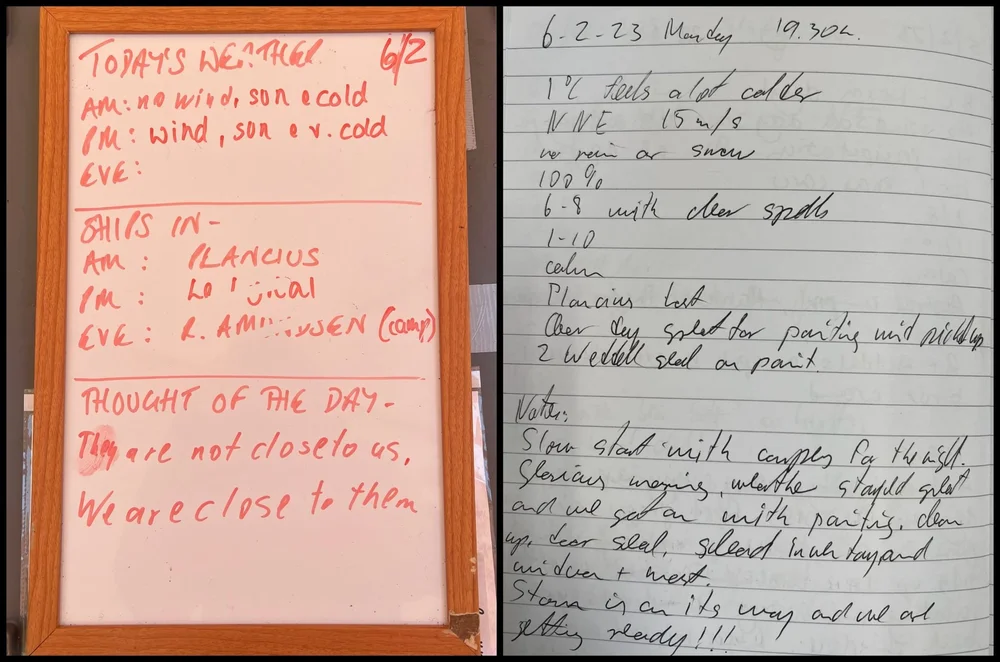 TODAY'S WEATHER 6/2
AM: no wind, son e cold
PM: wind, son e v. cold
EVE:
SHIPS IN-
AM: PLANCIUS
PM:
EVE: R. AMUNDSEN (camp)
THOUGHT OF THE DAY-
They are not close to us,
We are close to them
6-2-23 Monday 19.30h.
1°C feels a lot colder
NNE 15 m/s
no rain or snow
100%
6-8 with clear spells
1-10
calm
Plancius last
Clear day great for painting
2 Weddell seal on point.
Notes:
Slow start with campers for the night.
Glorious morning, weather stayed great
and we got on with painting, clean
up, door seal,
window + mast.
Storm is on its way and we are
getting ready!!!